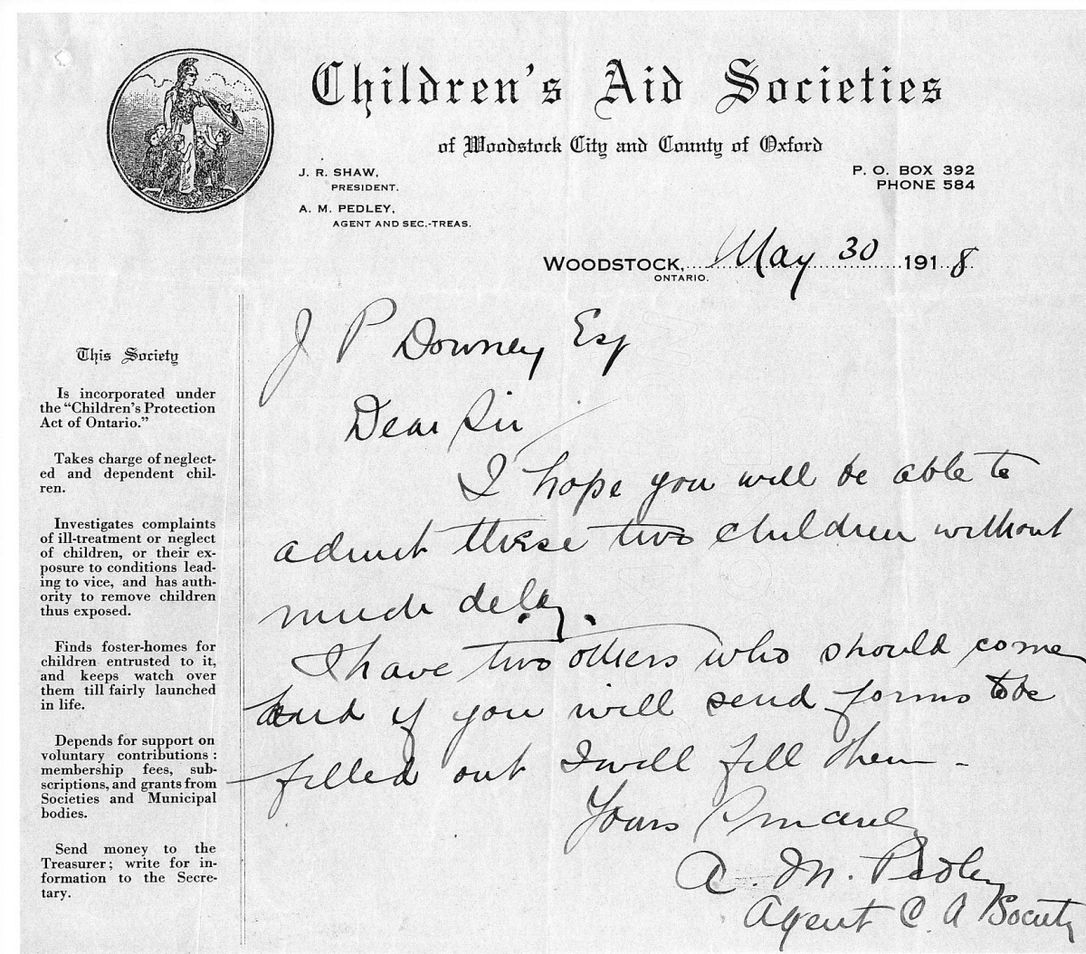 Children's Aid Societies
of Woodstock City and County of Oxford
J. R. SHAW,
PRESIDENT.
A. M. PEDLEY,
AGENT AND SEC.-TREAS.
P. O. BOX 392
PHONE 584
WOODSTOCK, May 30 1918
ONTARIO.
This Society
Is incorporated under
the "Children's Protection
Act of Ontario."
Takes charge of neglect-
ed and dependent chil-
ren.
Investigates complaints
of ill-treatment or neglect
of children, or their ex-
posure to conditions lead-
ing to vice, and has auth-
ority to remove children
thus exposed.
Finds foster-homes for
children entrusted to it,
and keeps watch over
them till fairly launched
in life.
Depends for support on
voluntary contributions :
membership fees, sub-
scriptions, and grants from
Societies and Municipal
bodies.
Send money to the
Treasurer ; write for in-
formation to the Secre-
tary.
J P Downey Esq
Dear Sir
I hope you will be able to
admit these two children without
much delay.
I have two others who should come
and if you will send forms to be
filled out I will fill them -
Yours Sincerely
A. M. Pedley
Agent C. A Society